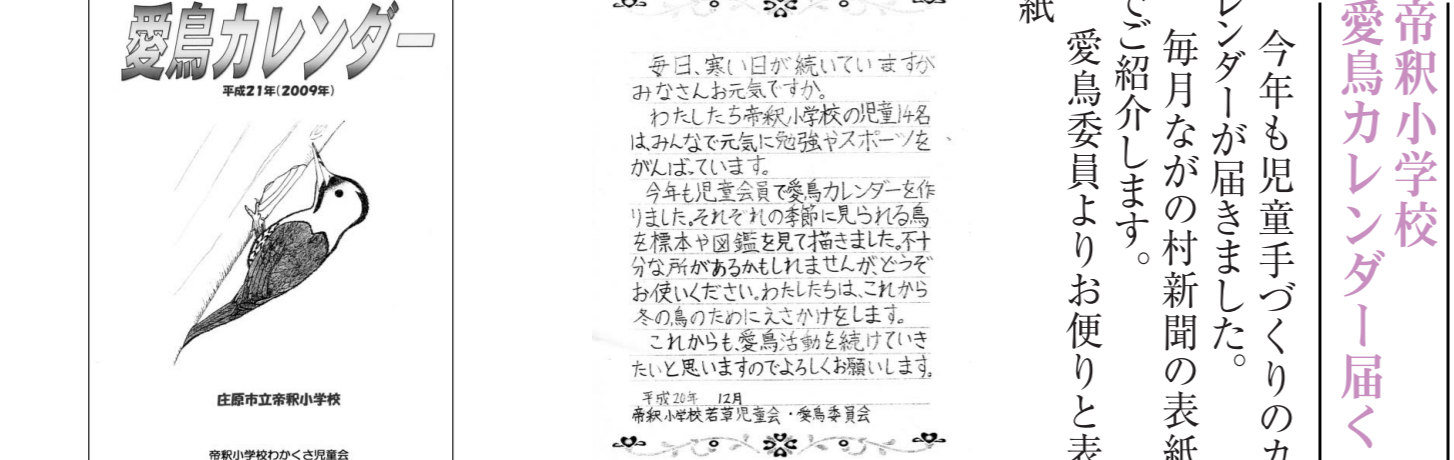 帝釈小学校
愛鳥カレンダー届く
今年も児童手づくりのカ
レンダーが届きました。
毎月ながの村新聞の表紙
でご紹介します。
愛鳥委員よりお便りと表
紙
毎日、寒い日が続いていますが
みなさんお元気ですか。
わたしたち帝釈小学校の児童14名
は、みんなで元気に勉強やスポーツを
がんばっています。
今年も児童会員で愛鳥カレンダーを作
りました。それぞれの季節に見られる鳥
を標本や図鑑を見て描きました。不十
分な所があるかもしれませんが、どうぞ
お使いください。わたしたちは、これから
冬の鳥のためにえさかけをします。
これからも、愛鳥活動を続けていき
たいと思いますのでよろしくお願いします。
平成20年 12月
帝釈小学校若草児童会・愛鳥委員会
愛鳥カレンダー
平成21年(2009年)
庄原市立帝釈小学校
帝釈小学校わかくさ児童会